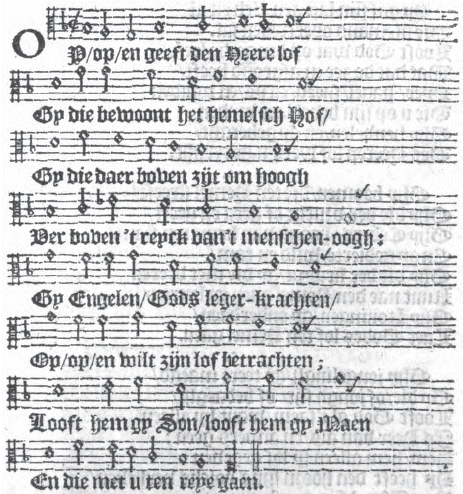 OP/op/en geeft den Heere lof
Gy die bewoont het hemelsch Hof/
Gy die daer boven zijt om hoogh
Ver boven 't reyck van't menschen-oogh:
Gy Engelen/Gods leger-krachten/
Op/op/en wilt zijn lof betrachten;
Looft hem gy Son/looft hem gy Maen
En die met u ten reye gaen.